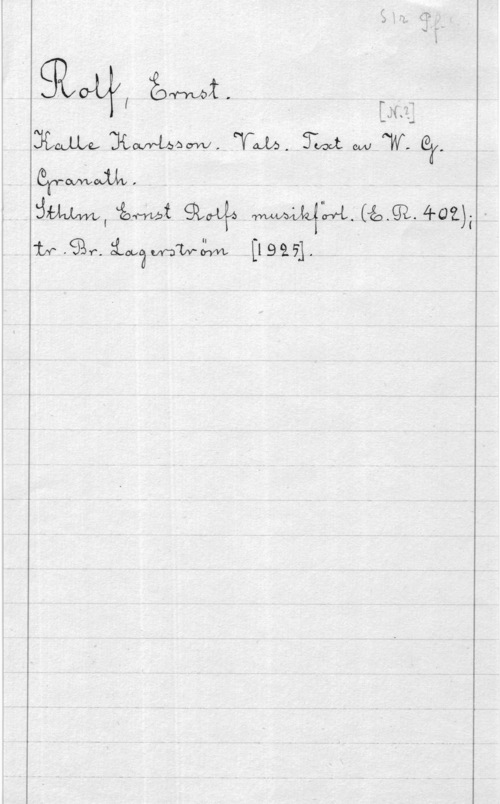 S 12 Pf.
Rolf, Ernst.
Kalle Karlsson. Vals. Text av W. G.
Granath.
Sthlm, Ernst Rolfs musikförl. (E.R. 402);
tr. Br. Lagerström [1925].